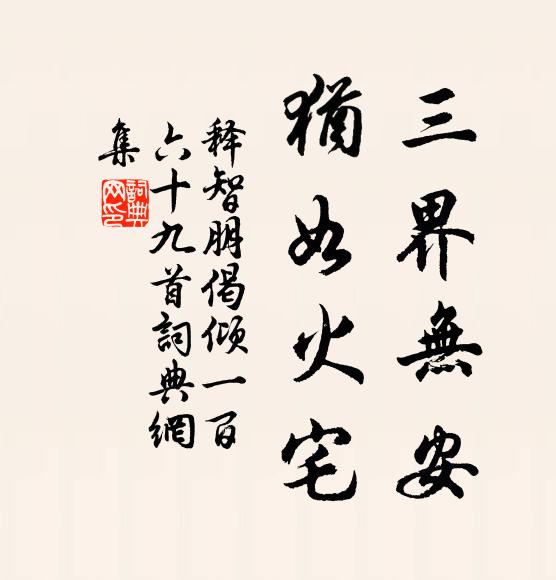 三界無安
猶如火宅
释智朋偈倾一百
六十九首詞典網
集
詞典网印